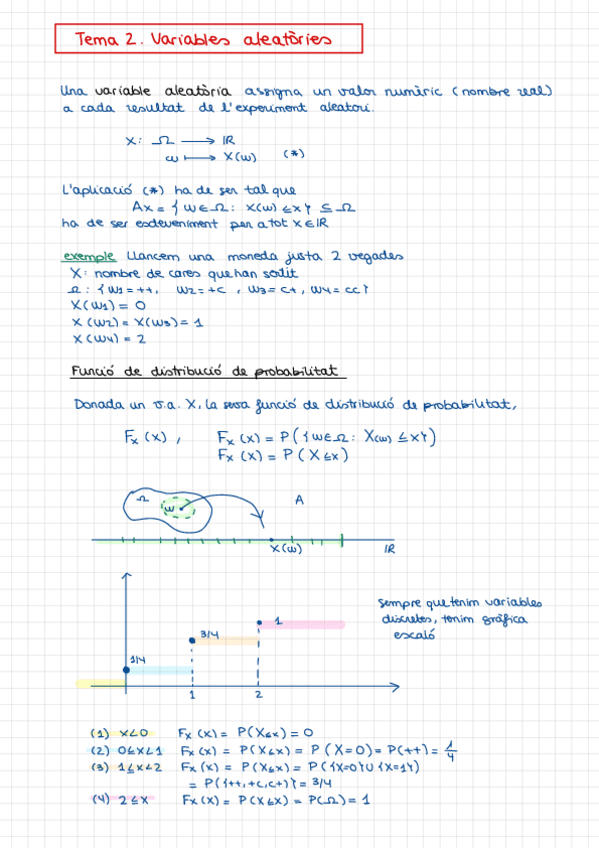 Tema 2. Variables aleatòries
Una variable aleatòria assigna un valor numèric (nombre real)
a cada resultat de l'experiment aleatori.
X: Ω → IR
ω ↦ X(ω) (*)
L'aplicació (*) ha de ser tal que
Ax = { ω ∈ Ω : X(ω) ≤ x } ⊆ Ω
ha de ser esdeveniment per a tot x ∈ IR
exemple Llancem una moneda justa 2 vegades
X: nombre de cares que han sortit
Ω : { ω1 = ++, ω2 = +c , ω3 = c+, ω4 = cc }
X(ω1) = 0
X (ω2) = X(ω3) = 1
X (ω4) = 2
Funció de distribució de probabilitat
Donada un v.a. X, la seva funció de distribució de probabilitat,
Fx (x) , Fx (x) = P ( { ω ∈ Ω : X(ω) ≤ x } )
Fx (x) = P ( X ≤ x )
Ω
ω
A
X(ω)
IR
1/4
3/4
1
1
2
sempre que tenim variables
discretes, tenim gràfica
escaló
(1) x < 0 Fx (x) = P(X ≤ x) = 0
(2) 0 ≤ x < 1 Fx (x) = P(X ≤ x) = P (X = 0) = P(++) = 1/4
(3) 1 ≤ x < 2 Fx (x) = P(X ≤ x) = P({X=0} ∪ {X=1})
= P({++, +c, c+}) = 3/4
(4) 2 ≤ x Fx (x) = P(X ≤ x) = P(Ω) = 1